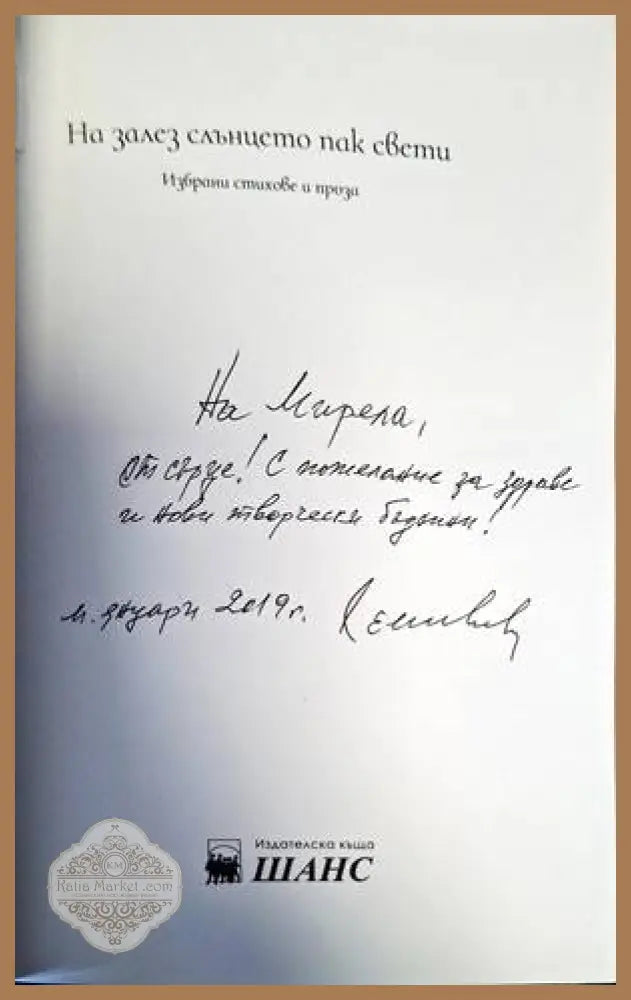 На залез слънцето пак свети
Избрани стихове и проза
На Мирела,
от сърце! С пожелание за здраве
и нови творчески бъднини!
м. януари 2019 г.
Издателска къща
ШАНС
KM
Katia Market.com